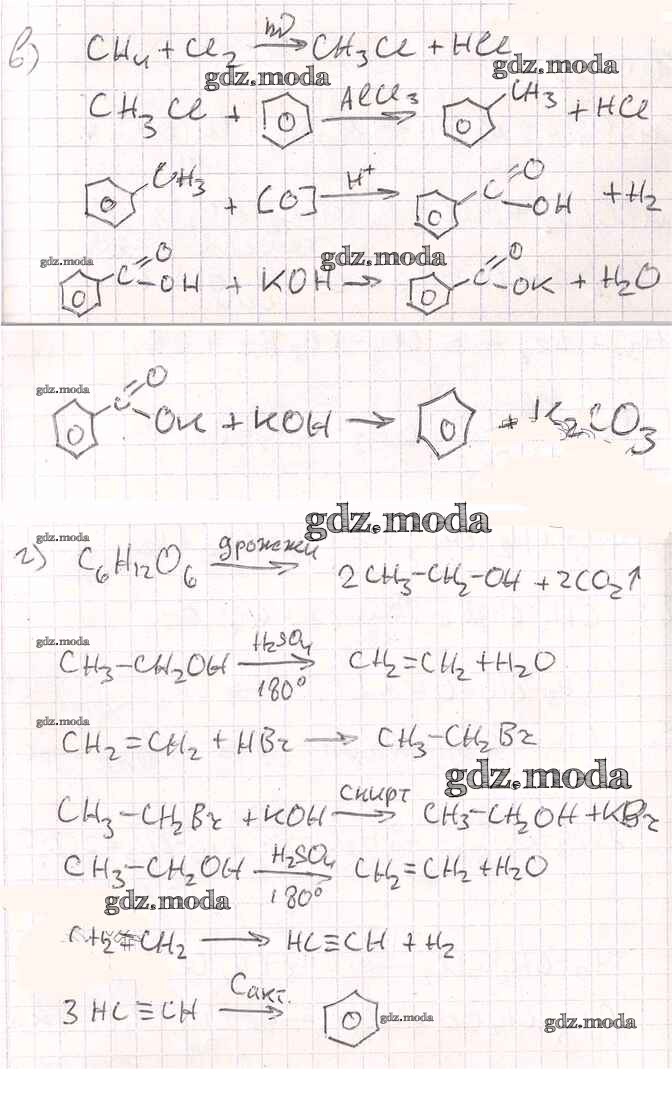 в) CH4 + Cl2 hν→ CH3Cl + HCl
gdz.moda gdz.moda
CH3Cl + AlCl3→ CH3 + HCl
CH3 + [O] H+→ C=O OH + H2
gdz.moda gdz.moda
C=O OH + KOH → C=O OK + H2O
gdz.moda
C=O OK + KOH → + K2CO3
gdz.moda
gdz.moda
г) C6H12O6 дрожжи→ 2CH3-CH2-OH + 2CO2↑
gdz.moda
CH3-CH2OH H2SO4 180°→ CH2=CH2 + H2O
gdz.moda
CH2=CH2 + HBr → CH3-CH2Br
gdz.moda
CH3-CH2Br + KOH спирт→ CH3-CH2OH + KBr
CH3-CH2OH H2SO4 180°→ CH2=CH2 + H2O
gdz.moda
CH2=CH2 → HC≡CH + H2
3HC≡CH Cакт.→
gdz.moda gdz.moda